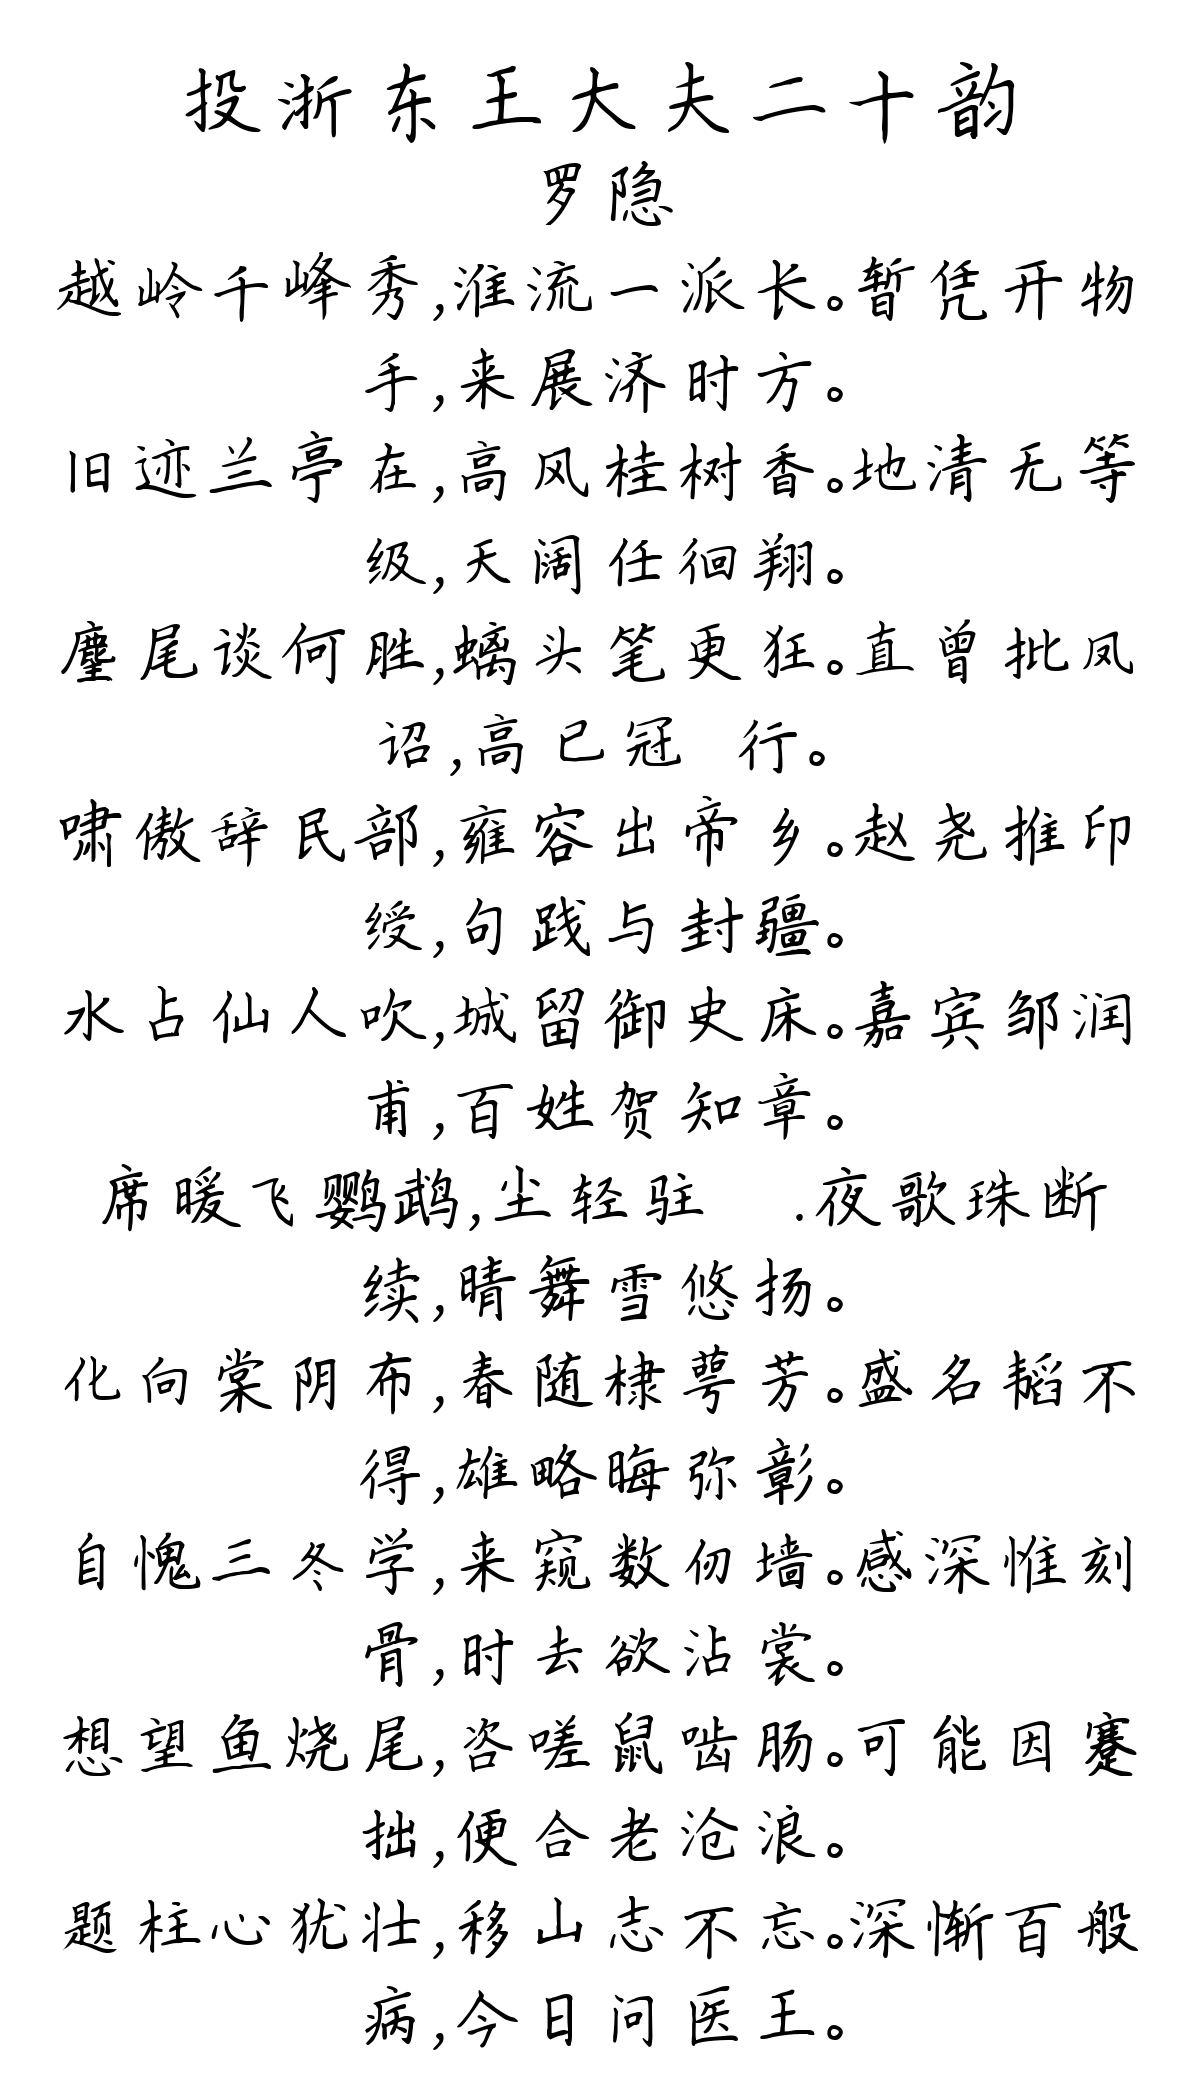 投浙东王大夫二十韵
罗隐
越岭千峰秀,淮流一派长。暂凭开物
手,来展济时方。
旧迹兰亭在,高风桂树香。地清无等
级,天阔任徊翔。
麈尾谈何胜,螭头笔更狂。直曾批凤
诏,高已冠 行。
啸傲辞民部,雍容出帝乡。赵尧推印
绶,句践与封疆。
水占仙人吹,城留御史床。嘉宾邹润
甫,百姓贺知章。
席暖飞鹦鹉,尘轻驻 .夜歌珠断
续,晴舞雪悠扬。
化向棠阴布,春随棣萼芳。盛名韬不
得,雄略晦弥彰。
自愧三冬学,来窥数仞墙。感深惟刻
骨,时去欲沾裳。
想望鱼烧尾,咨嗟鼠啮肠。可能因蹇
拙,便合老沧浪。
题柱心犹壮,移山志不忘。深惭百般
病,今日问医王。